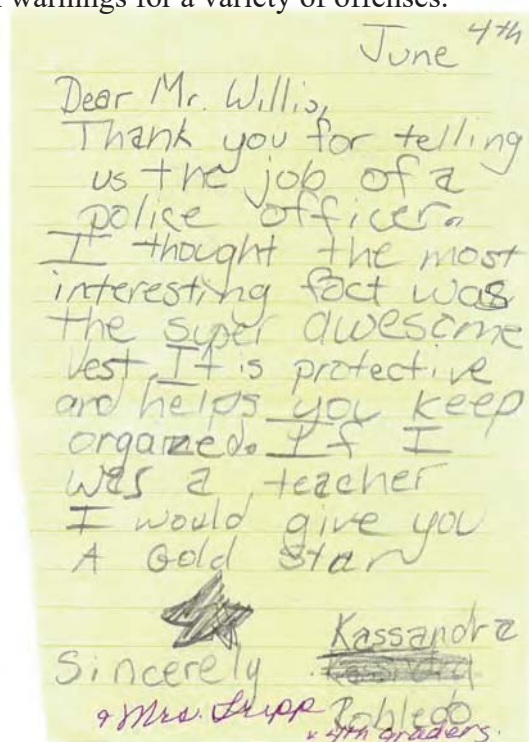 warnings for a variety of offenses.
June 4th
Dear Mr. Willis,
Thank you for telling
us the job of a
police officer.
I thought the most
interesting fact was
the super awesome
vest. It is protective
and helps you keep
organzed. If I
was a teacher
I would give you
A Gold Star
Kassandra
Sincerely
Robledo
& Mrs. Tripp
& 4th graders.